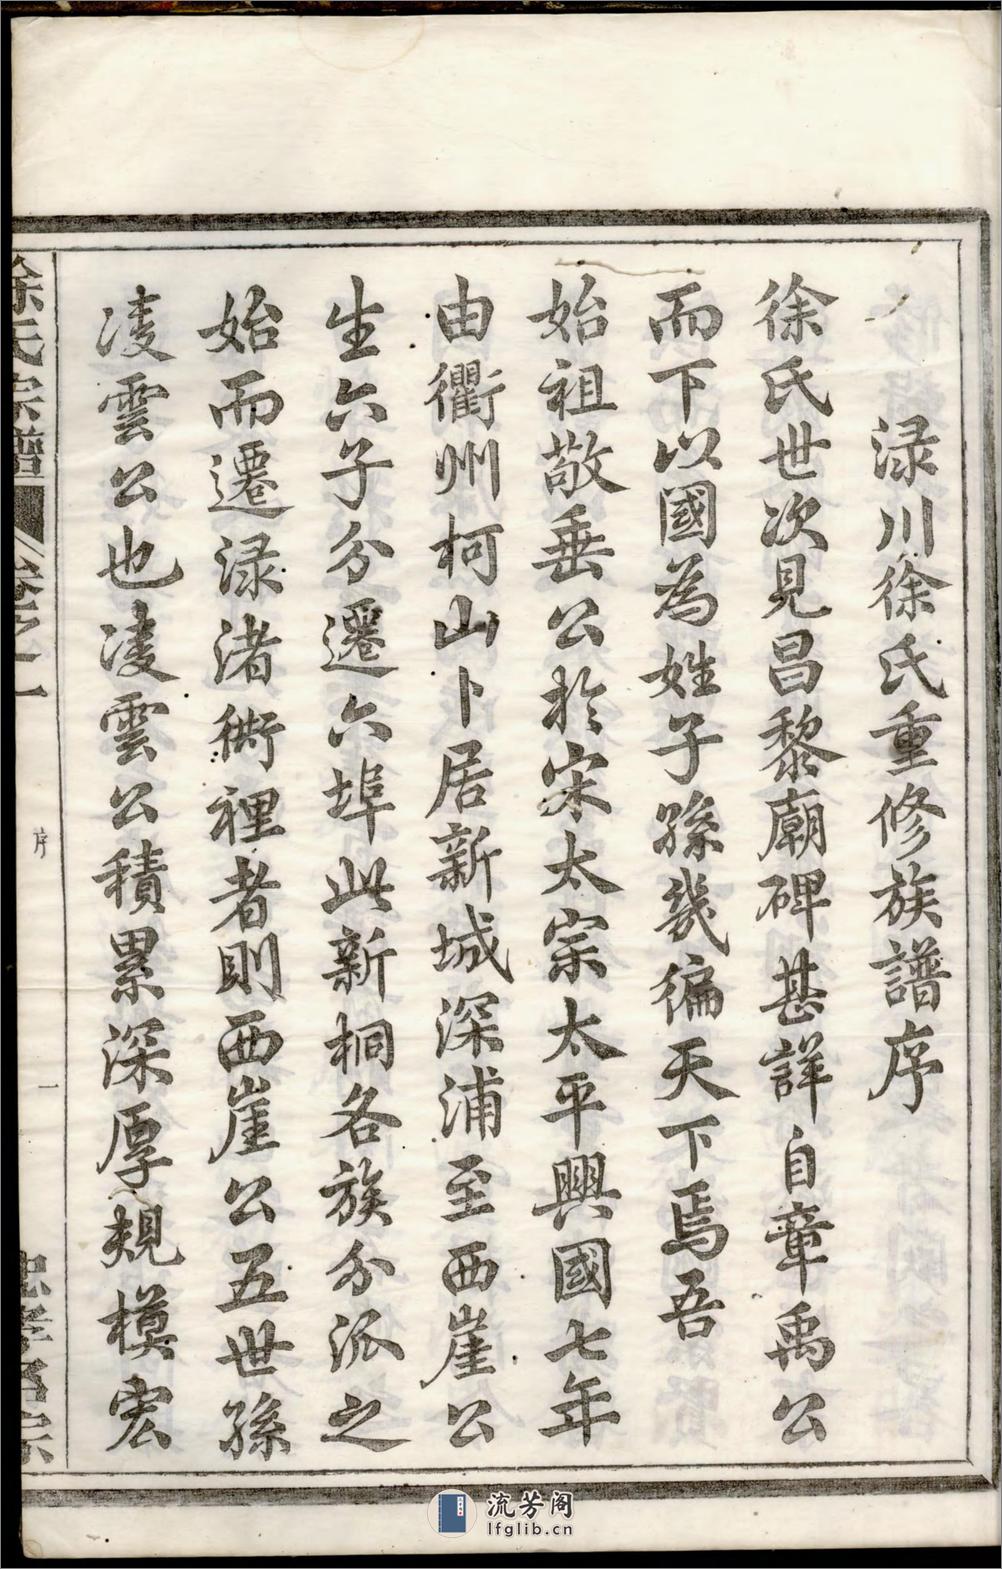 渌川徐氏重修族譜序
徐氏世次見昌黎廟碑甚詳自章禹公
而下以國為姓子孫幾徧天下焉吾
始祖敬垂公於宋太宗太平興國七年
由衢州柯山卜居新城深浦至西崖公
生六子分遷六埠此新桐各族分派之
始而遷渌渚衖裡者則西崖公五世孫
淩雲公也淩雲公積累深厚規模宏
徐氏宗譜
卷之一
序
一
流芳阁
lfglib.cn